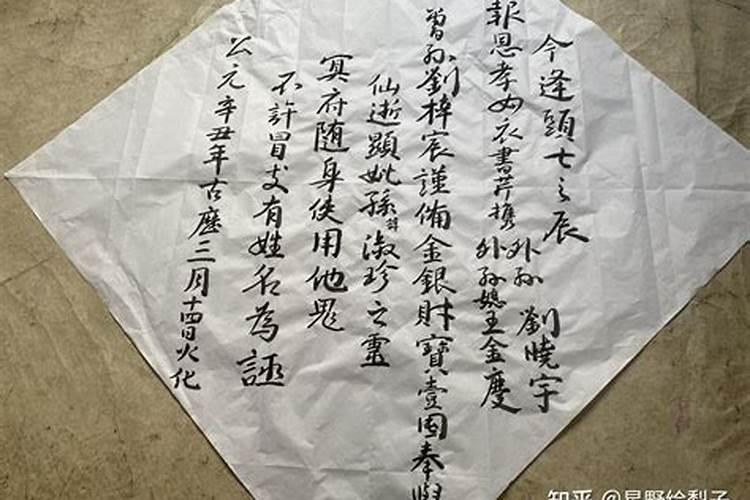 今逢頭七之辰
外孫 劉曉宇
報恩孝女衣書芹携外孫媳王金度
曾孫劉梓宸謹備金銀財寶壹圂奉與
仙逝顯妣孫淑珍之靈
冥府随身使用他鬼
不許冒支有姓名為證
公元辛丑年古歷三月十四日火化
知乎 @星野给梨子